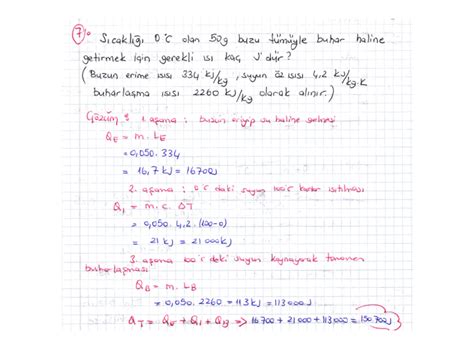 7) Sıcaklığı 0°C olan 50g buzu tümüyle buhar haline
getirmek için gerekli ısı kaç J'dür?
(Buzun erime ısısı 334 kJ/kg, suyun öz ısısı 4,2 kJ/kg.K
buharlaşma ısısı 2260 kJ/kg olarak alınır.)
Çözüm: 1. aşama: buzun eriyip su haline gelmesi
QE = m. LE
= 0,050. 334
= 16,7 kJ = 16700J
2. aşama: 0°C deki suyun 100°C kadar ısıtılması
Q1 = m. c. ΔT
= 0,050. 4,2. (100-0)
= 21 kJ = 21 000 kJ
3. aşama 100°C deki suyun kaynayarak tamamen
buharlaşması
QB = m. LB
= 0,050. 2260 = 113 kJ = 113000 J
QT = QE + Q1 + QB => 16700 + 21000 + 113000 = 150.700J